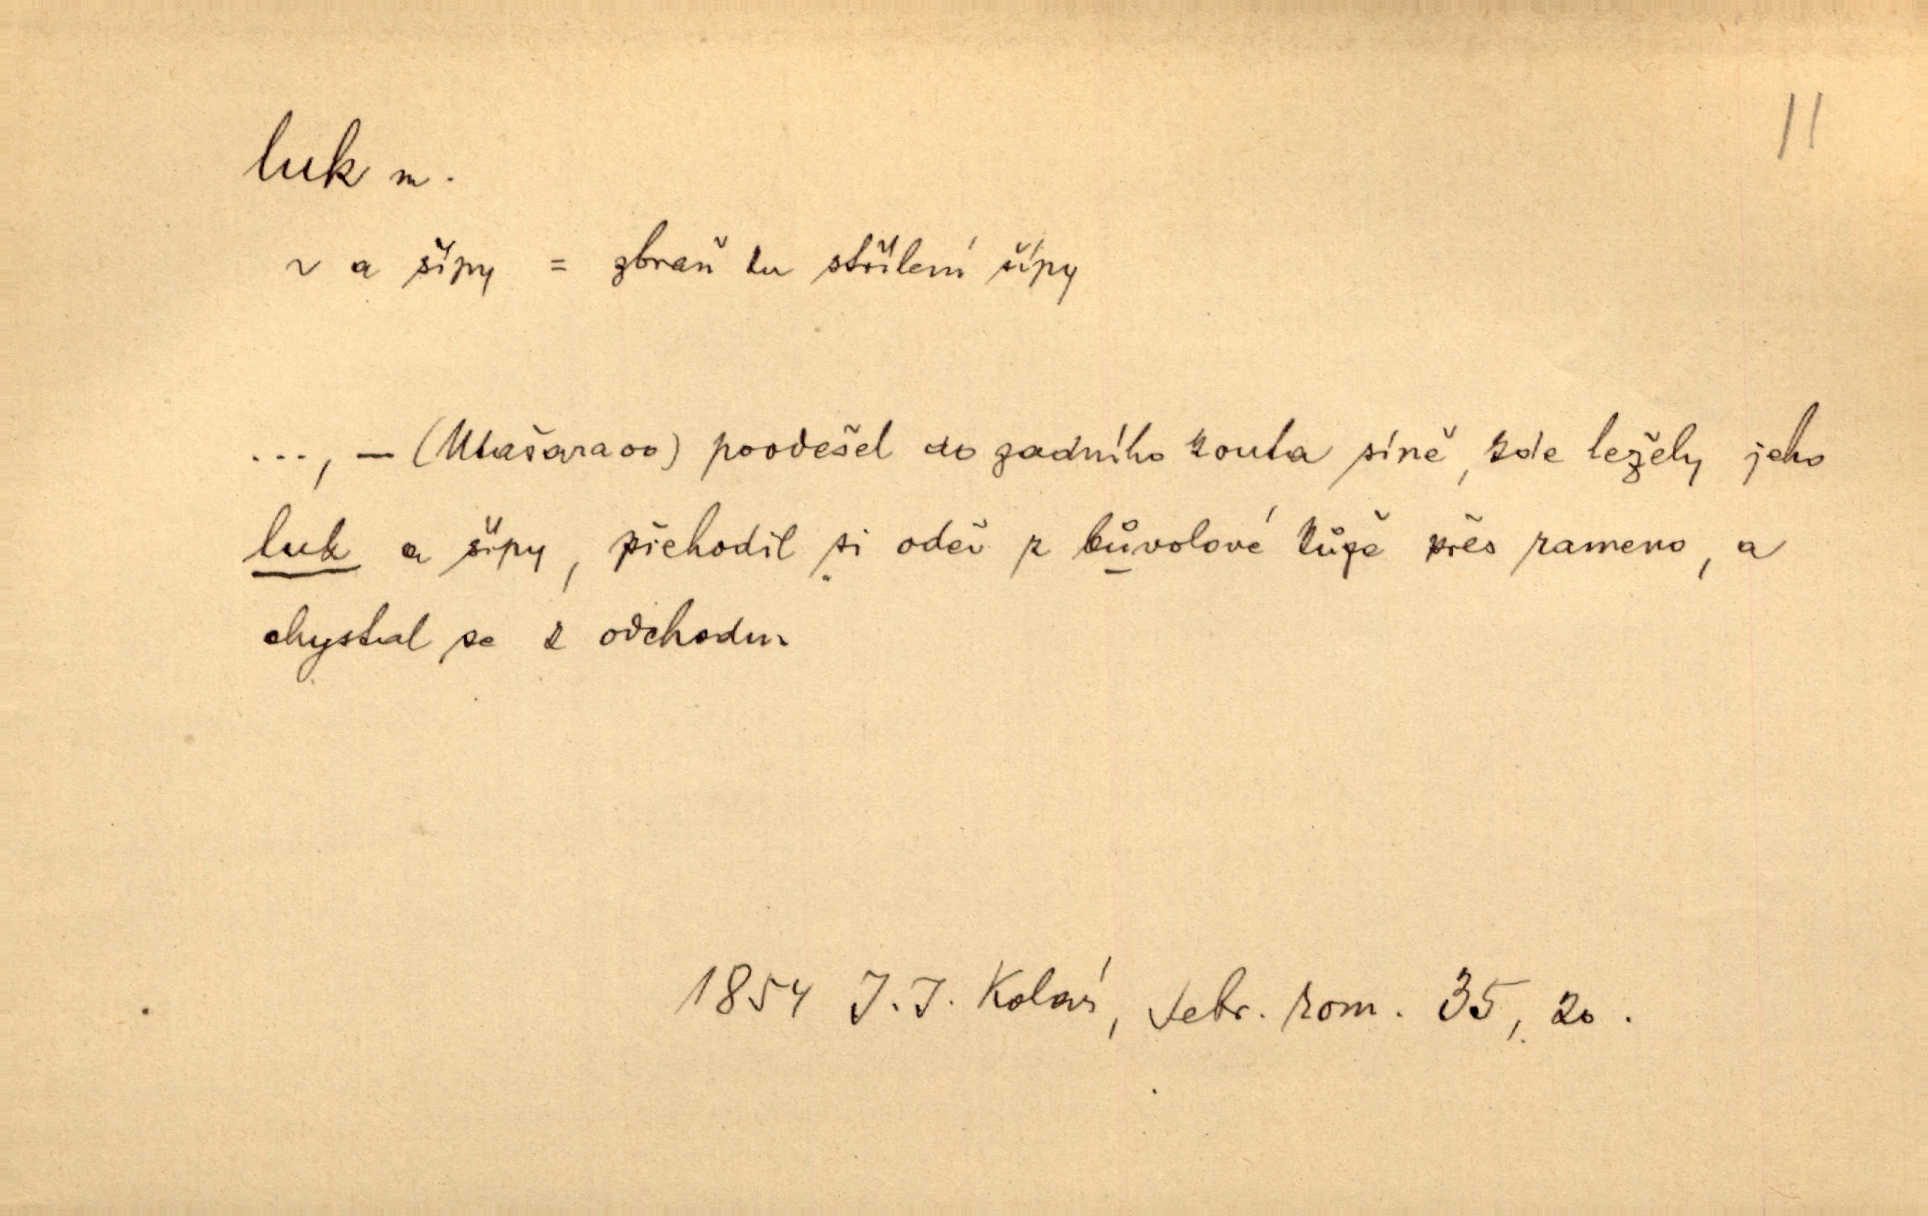 11
luk m.
~ a šípy = zbraň ku střílení šípy
..., – (Utašaraoo) poodešel do zadního kouta síně, kde ležely jeho
luk a šípy, přehodil si oděv z bůvolové kůže přes rameno, a
chystal se k odchodu
1854 J. J. Kolár, Sebr. rom. 35, 20.